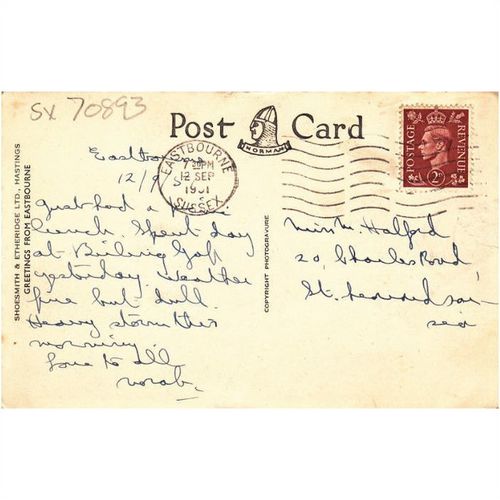 SX 70893
Post Card
NORMAN
EASTBOURNE
7 PM
12 SEP
1951
SUSSEX
POSTAGE REVENUE
2D
SHOESMITH & ETHERIDGE LTD., HASTINGS
GREETINGS FROM EASTBOURNE
COPYRIGHT PHOTOGRAVURE
Eastbourne
12/9
Just had a
lunch. Spent day
at Birling Gap
yesterday. Weather
fine but dull.
Heavy storm this
morning.
Love to all
Norah
Miss M. Halford
20 Charles Road
St. Leonards on
sea